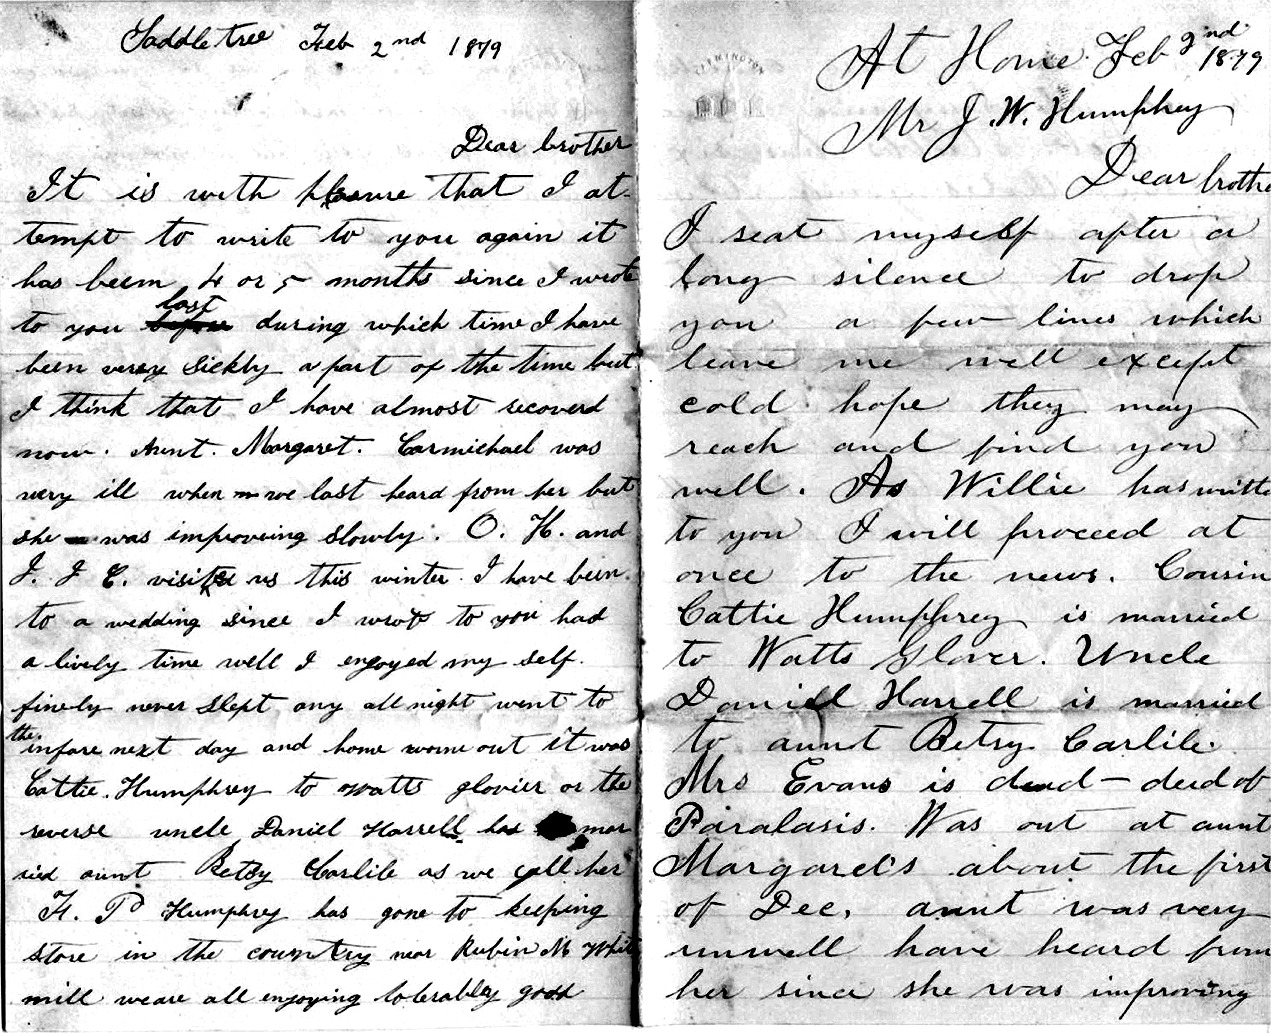 Saddletree Feb 2nd 1879
Dear brother
It is with plesure that I at-
tempt to write to you again it
has beem 4 or 5 months since I wrote
last
to you before during which time I have
been verry sickly a part of the time but
I think that I have almost recoverd
now. Aunt. Margaret. Carmichael was
very ill when we last heard from her but
she was improveing slowly. O. H. and
J. J C. visited us this winter. I have been
to a wedding since I wrote to you had
a lively time well I enjoyed my self.
finely never slept any all night went to
the
infare next day and home worne out it was
Cattie. Humphrey to watts glovier or the
reverse uncle Daniel Harrell has mar
ried aunt Betsy Carlile as we call her
H. P Humphrey has gone to keeping
store in the country near Rubin M White
mill we are all enjoying tolerabley good
CERMINGTON
At Home. Feb 2nd 1879
Mr J. W. Humphrey
Dear brothe
I seat myself after a
long silence to drop
you a few lines which
leave me well except
cold hope they may
reach and find you
well. As Willie has writte
to you I will proceed at
once to the news. Cousin
Cattie Humphrey is married
to Watts Glover. Uncle
Daniel Harrell is married
to aunt Betsy Carlile.
Mrs Evans is dead – died of
Paralasis. Was out at aunt
Margaret's about the first
of Dec. aunt was very
unwell have heard from
her since she was improving